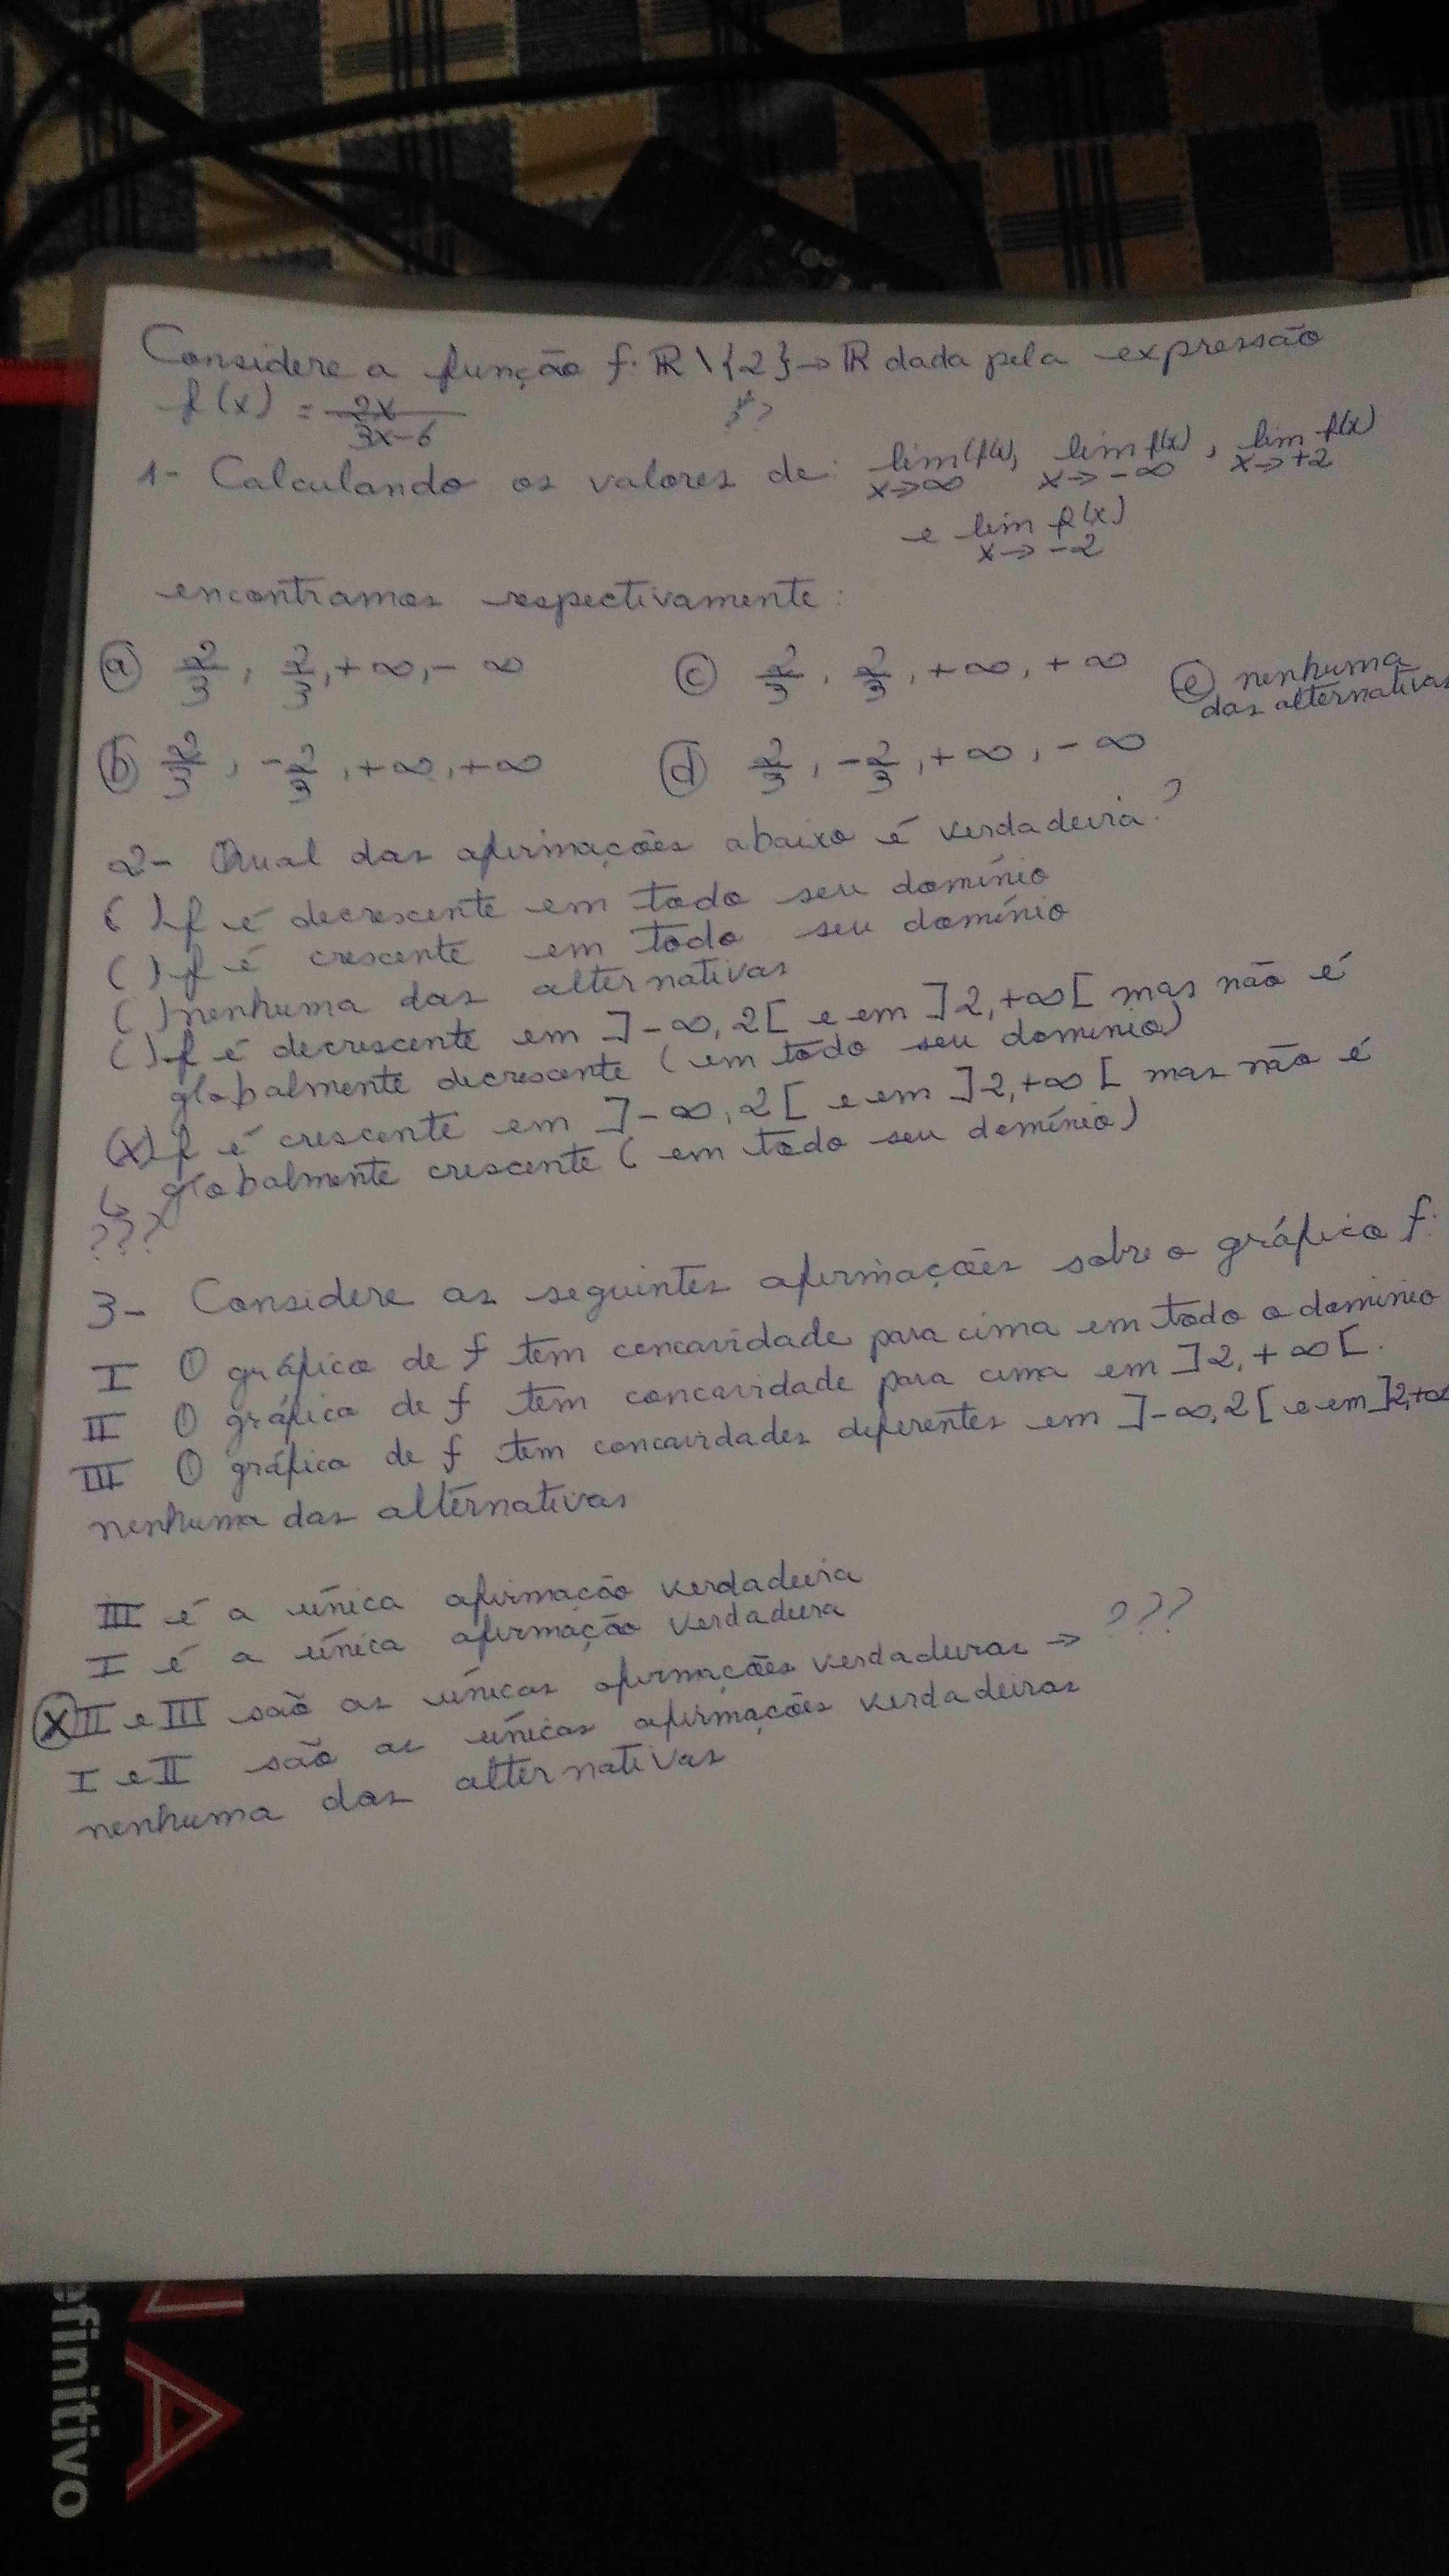 Considere a função f: ℝ \ {2} → ℝ dada pela expressão
f(x) = 2x / 3x-6
??
1- Calculando os valores de: lim f(x), x→∞ lim f(x), x→-∞ lim f(x) x→+2
e lim f(x) x→-2
encontramos respectivamente:
(a) 2/3, 2/3, +∞, -∞ (c) 2/3, 2/3, +∞, +∞ (e) nenhuma das alternativas
(b) 2/3, -2/3, +∞, +∞ (d) 2/3, -2/3, +∞, -∞
2- Qual das afirmações abaixo é verdadeira?
( ) f é decrescente em todo seu domínio
( ) f é crescente em todo seu domínio
( ) nenhuma das alternativas
( ) f é decrescente em ]-∞, 2[ e em ]2, +∞[ mas não é
globalmente decrescente (em todo seu domínio)
(x) f é crescente em ]-∞, 2[ e em ]2, +∞[ mas não é
↳ globalmente crescente (em todo seu domínio)
???
3- Considere as seguintes afirmações sobre o gráfico f:
I O gráfico de f tem concavidade para cima em todo o domínio
II O gráfico de f tem concavidade para cima em ]2, +∞[.
III O gráfico de f tem concavidades diferentes em ]-∞, 2[ e em ]2, +∞
nenhuma das alternativas
III é a única afirmação verdadeira
I é a única afirmação verdadeira
(x) II e III são as únicas afirmações verdadeiras → ???
I e II são as únicas afirmações verdadeiras
nenhuma das alternativas
efinitivo